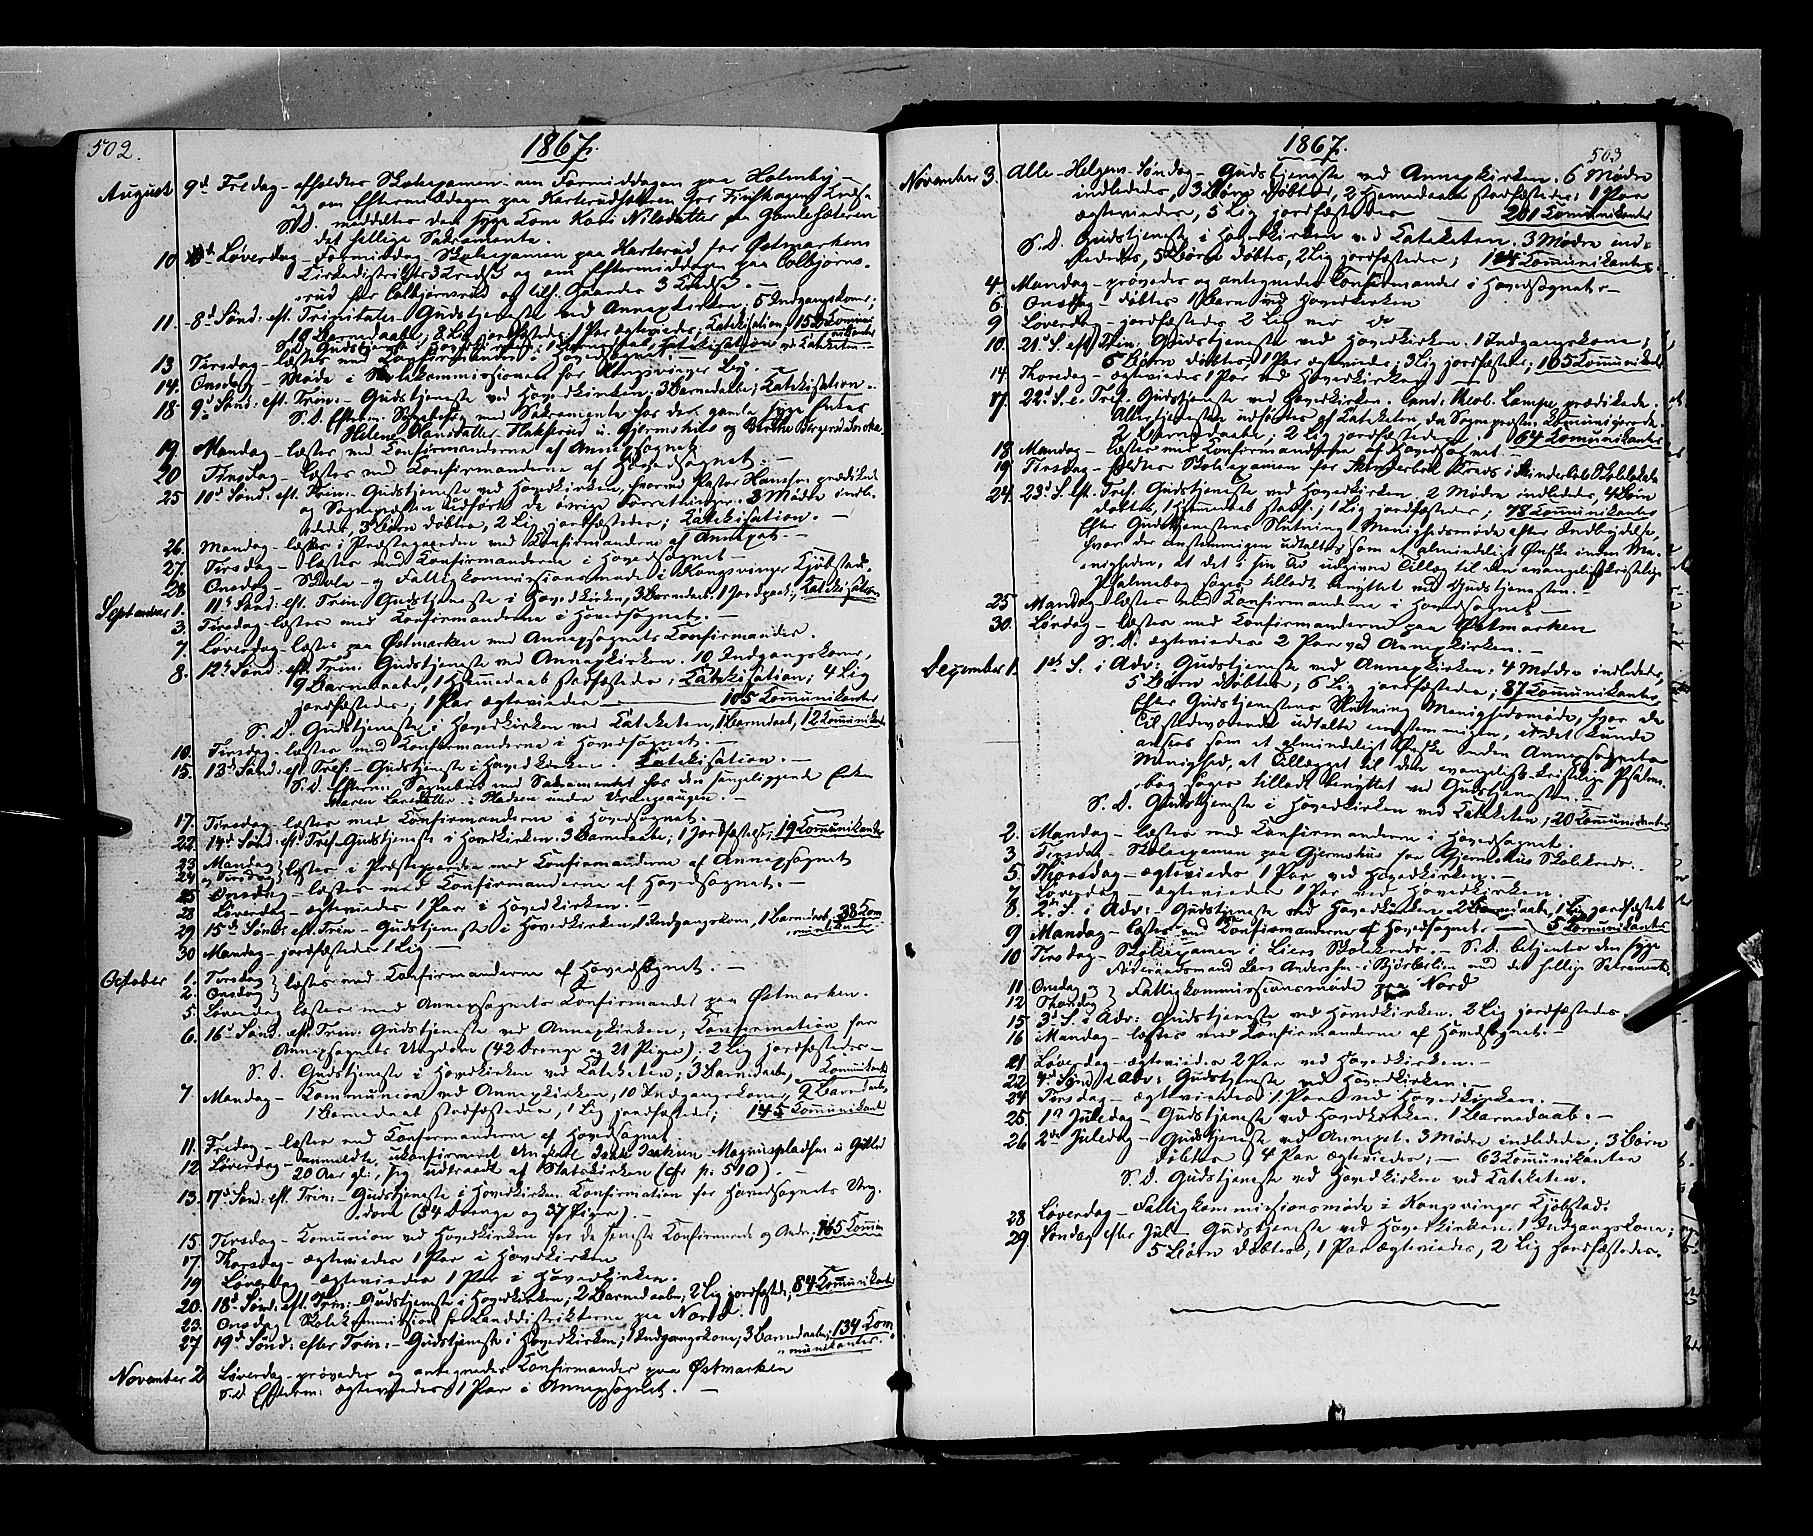 502.
1867.
August 9d Fredag - afholdtes Skoleexamen om Formiddagen paa Holmby -
og om Eftermiddagen paa Karterudsæteren for Finskogens Kreds
S. D. meddeltes den syge Kone Kari Nilsdatter paa Gamlesæteren
det hellige Sakramente.
10 Løverdag - Formiddag - Skoleexamen paa Harterud for Østmarkens
Kirkedistrikts Kreds og om Eftermiddagen paa Colbjørns-
rud for Colbjørnsrud og 3 Kredse. -
11. 8d Sønd: eft. Trinitatis - Gudstjeneste ved Annexkirken; 5 Indgangskoner;
8 Barnedaab, 8 Lig jordfæstede, 1 Par ægteviedes, Katekisation, Kommunikanter
S. D. Gudstjeneste i Hovedkirken, 1 Barnedaab, Katekisation ved Kateketen -
13 Tirsdag - læstes med Confirmanderne i Hovedsognet
14. Onsdag - Møde i Skolekommissionen for Kongsvinger By. -
18. 9d Sønd: eft. Trin: - Gudstjeneste ved Hovedkirken, 3 Barnedaab; Katekisation.
S. D. Efterm. Sognebud med Sakramente hos den gamle syge Enke
Helene Hansdatter u. Gjermshus og Berthe
19. Mandag - læstes med Confirmanderne af Annexsognet
20 Tirsdag - læstes med Confirmanderne af Hovedsognet. -
25 10d Sønd. eft. Trin: - Gudstjeneste ved Hovedkirken, hvorved Pastor Hansen prædikede
og Sognepræsten udførte de øvrige Forretninger. 3 Mødre indle-
dedes, 3 Børn døbtes, 2 Lig jordfæstedes; Katekisation. -
26. Mandag - læstes i Præstegaarden med Confirmanderne af Annexet. -
27. Tirsdag - læstes med Confirmanderne i Hovedsognet -
28 Onsdag - Skole- og Fattigkommissionsmøde i Kongsvinger Kjøbstad.
September 1. 11d Sønd: eft. Trin: Gudstjeneste i Hovedkirken, 3 Barnedaab, 1 Jordpaak., Katekisation
3. Tirsdag - læstes med Confirmanderne i Hovedsognet. -
7 Løverdag - læstes paa Østmarken med Annexsognets Confirmander.
8. 12d Sønd: eft. Trin: Gudstjeneste ved Annexkirken. 10 Indgangskoner,
9 Barnedaab, 1 Hjemmedaab stadfæstedes; Katekisation; 4 Lig
jordfæstedes; 1 Par ægteviedes — 105 Kommunikanter
S. D. Gudstjeneste i Hovedkirken ved Kateketen, 1 Barnedaab, 12 Kommunikanter
10. Tirsdag - læstes med Confirmanderne i Hovedsognet. -
15. 13d Sønd: eft. Tref. - Gudstjeneste i Hovedkirken. Katekisation. -
S. D. Efterm: Sognebud med Sakramentet hos den sengeliggende Enke
Maren Larsdatter i Pladsen under Vrangshaugen. -
17. Tirsdag læstes med Confirmanderne i Hovedsognet. -
22. 14d Sønd: eft. Tref - Gudstjeneste i Hovedkirken. 3 Barnedaab; 1 Jordfæstelse; 19 Komunikanter
23 Mandag } læstes i Præstegaarden med Confirmanderne af Annexsognet
24 og Tirsdag
25 Onsdag - læstes med Confirmanderne af Hovedsognet. -
28 Løverdag - ægteviedes 1 Par i Hovedkirken. -
29 15d Sønd: eft. Trin - Gudstjeneste i Hovedkirken, 1 Indgangskone, 1 Barnedaab, 38 Kom-
munikanter
30 Mandag - jordfæstedes 1 Lig -
October 1. Tirsdag } læstes med Confirmanderne af Hovedsognet. -
2. Onsdag
5. Løverdag læstes med Annexsognets Confirmander paa Østmarken.
6. 16d Sønd: eft. Trin: Gudstjeneste ved Annexkirken; Confirmation for
Annexsognets Ungdom (42 Drenge og 21 Piger); 2 Lig jordfæstedes -
S. D. Gudstjeneste i Hovedkirken ved Kateketen; 3 Barnedaab, Komunikanter
7. Mandag - Kommunion ved Annexkirken, 10 Indgangskoner, 9 Barnedaab,
1 Barnedaab stadfæstedes, 1 Lig jordfæstedes; 145 Kommunikanter
11. Fredag - læstes med Confirmanderne af Hovedsognet
12. Løverdag - anmeldte, ukonfirmeret Magnuspladsen u. Gillerud
20 Aar gl., sig udtraadt af Statskirken (cfr p: 510).
13. 17d Sønd: eft. Trin: - Gudstjeneste i Hovedkirken Confirmation for Hovedsognets Ung-
dom (54 Drenge og 37 Piger). -
15. Tirsdag - Komunion ved Hovedkirken for de fleste Confirmerede og Andre, 165 Komm
17 Thorsdag - ægteviedes 1 Par i Hovedkirken
19 Løverdag - ægteviedes 1 Par i Hovedkirken.
20. 18d Sønd: eft. Trin: - Gudstjeneste i Hovedkirken; 2 Barnedaab, 2 Lig jordfæstede, 84 Kommunikanter
23. Onsdag Skolekommission for Landdistrikterne paa Nord.
27 19d Sønd: efter Trin: - Gudstjeneste i Hovedkirken; 1 Indgangskone, 3 Barnedaab; 134 Kom-
munikanter. -
November 2 Løverdag - prøvedes og antegnedes Confirmander paa Østmarken
S. D. Efterm: ægteviedes 1 Par i Annexsognet. -
1867.
503
November 3. Alle-Helgens Søndag - Gudstjeneste ved Annexkirken. 6 Mødre
indlededes, 3 Børn døbtes, 2 Hjemmedaab stadfæstedes, 1 Par
ægteviedes, 5 Lig jordfæstedes — 201 Komunikanter
S. D. Gudstjeneste i Hovedkirken ved Kateketen. 3 Mødre ind-
lededes, 5 Børn døbtes, 2 Lig jordfæstedes; 144 Kommunikanter
4. Mandag - prøvedes og antegnedes Confirmander i Hovedsognet. -
6. Onsdag - døbtes 1 Barn ved Hovedkirken
9 Løverdag - jordfæstedes 2 Lig ved do
10. 21d S. eft Trin: Gudstjeneste ved Hovedkirken. 1 Indgangskone;
5 Børn døbtes, 1 Par ægteviedes, 3 Lig jordfæstedes; 105 Kommunikanter
14. Thorsdag - ægteviedes 1 Par ved Hovedkirken -
17. 22d S. e. Tref. Gudstjeneste ved Hovedkirken. Cand. theol. Lampe prædikede.
Altertjenesten udførtes af Kateketen, da Sognepræsten Komuniserede.
2 Barnedaab, 2 Lig jordfæstedes. 64 Komunikanter
18 Mandag - læstes med Confirmanderne af Hovedsognet -
19 Tirsdag - holdtes Skoleexamen for Skinderbøl Kreds i Skinderbøl Skolelokale
24 23d S. eft. Tref. Gudstjeneste ved Hovedkirken. 2 Mødre indlededes, 4 Børn
døbtes, 1 Hjemmedaab stadf.; 1 Lig jordfæstedes; 78 Kommunikanter
Efter Gudstjenestens Slutning Menighedsmøde efter Indbydelse,
hvor der enstemmigen udtaltes som et almindeligt Ønske inden Me-
nigheden, at det i sin Tid udgivne Tillæg til den evangelisk kristelige
Psalmebog søges tilladt benyttet ved Gudstjenesten. -
25 Mandag læstes med Confirmanderne i Hovedsognet -
30. Lørdag - læstes med Confirmanderne paa Østmarken
S. D. ægteviedes 2 Par ved Annexkirken. -
Dezember 1. 1st S. i Adv: Gudstjeneste ved Annexkirken. 4 Mødre indlededes,
5 Børn døbtes; 6 Lig jordfæstedes; 87 Kommunikanter,
Efter Gudstjenestens Slutning Menighedsmøde, hvor de
Tilstedeværende udtalte enstemmigen, at det kunde
ansees som et almindeligt Ønske inden Annexsognets
Menighed, at Tillægget til den evangelisk-kristelige Psalme-
bog søges tilladt benyttet ved Gudstjenesten. -
S. D. Gudstjeneste i Hovedkirken ved Kateketen; 20 Kommunikanter
2. Mandag - læstes med Confirmanderne i Hovedsognet.
3 Tirsdag - Skoleexamen paa Gjermshus for Gjermshus Skolekreds.
5. Thorsdag - ægteviedes 1 Par ved Hovedkirken. -
7 Løverdag - ægteviedes 1 Par ved Hovedkirken.
8. 2d S. i Adv: - Gudstjeneste ved Hovedkirken 2 Barnedaab, 1 Lig jordfæstet
9 Mandag - læstes med Confirmanderne af Hovedsognet. — 5 Komunikanter
10 Tirsdag - Skoleexamen i Liers Skolekreds - S. D. betjentes den syge
Føderaadsmand Lars Andersen i Bjørkelien med det hellige Sakrament.
11 Onsdag og } Fattigkommissionsmøde paa Nord
12 Thorsdag
15 3d S. i Adv: Gudstjeneste ved Hovedkirken. 2 Lig jordfæstedes.
16 Mandag - læstes med Confirmanderne af Hovedsognet -
21 Løverdag - ægteviedes 2 Par ved Hovedkirken. -
22 4d Sønd i Adv: Gudstjeneste ved Hovedkirken. -
24 Tirsdag - ægteviedes 1 Par ved Hovedkirken. -
25. 1d Juledag - Gudstjeneste ved Hovedkirken. 1 Barnedaab. -
26 2den Juledag - Gudstjeneste ved Annexet. 3 Mødre indledede. 3 Børn
døbtes, 4 Par ægteviedes; - 63 Kommunikanter
S. D. Gudstjeneste ved Hovedkirken ved Kateketen.
28 Løverdag - Fattigkommissionsmøde i Kongsvinger Kjøbstad.
29 Søndag efter Jul - Gudstjeneste ved Hovedkirken. 1 Indgangskone;
5 Børn døbtes, 1 Par ægteviedes, 2 Lig jordfæstedes.